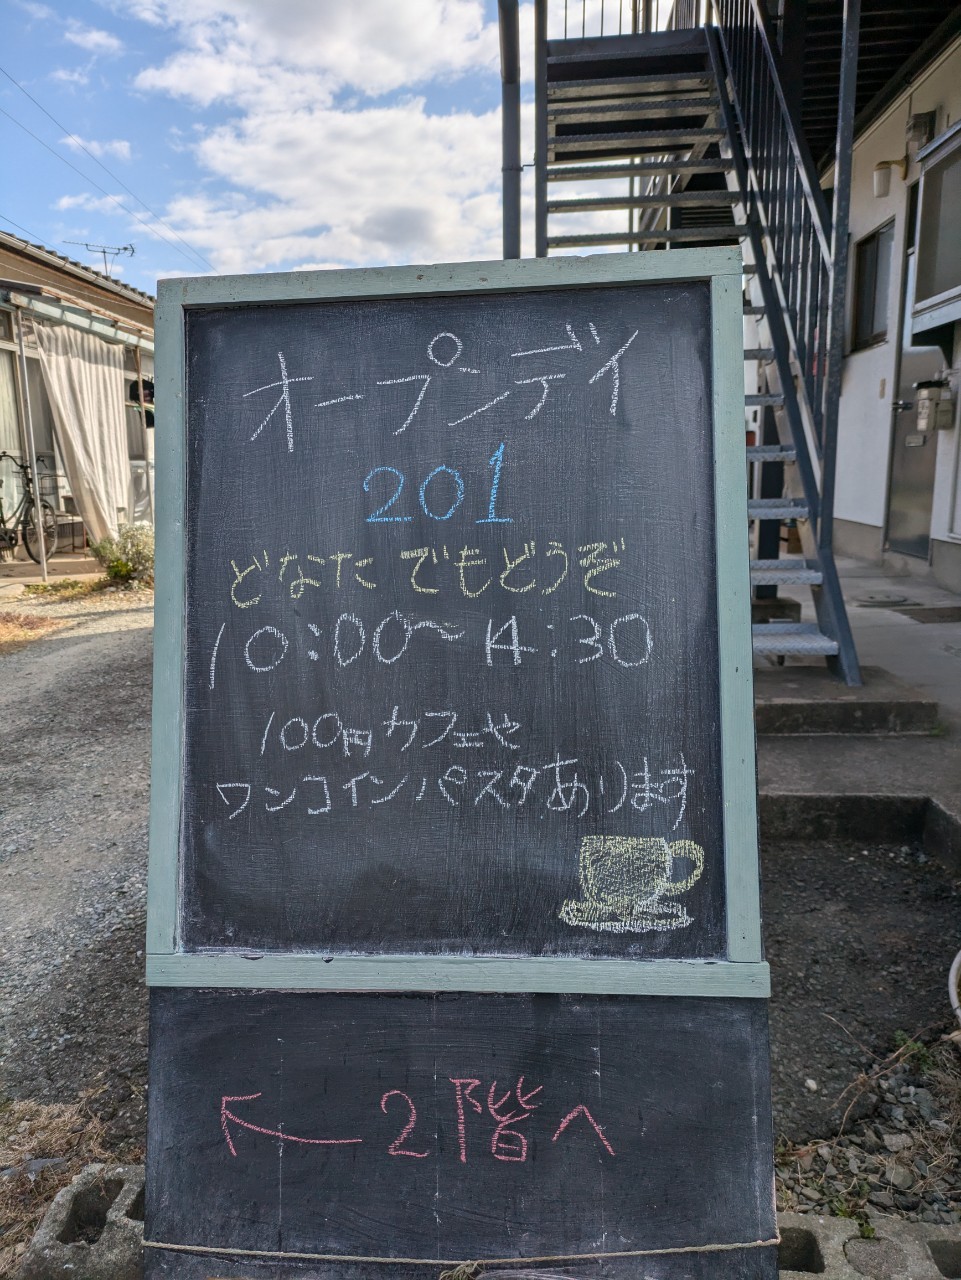 オープンデイ
201
どなたでもどうぞ
10:00〜14:30
100円カフェや
ワンコインパスタあります
←2階へ